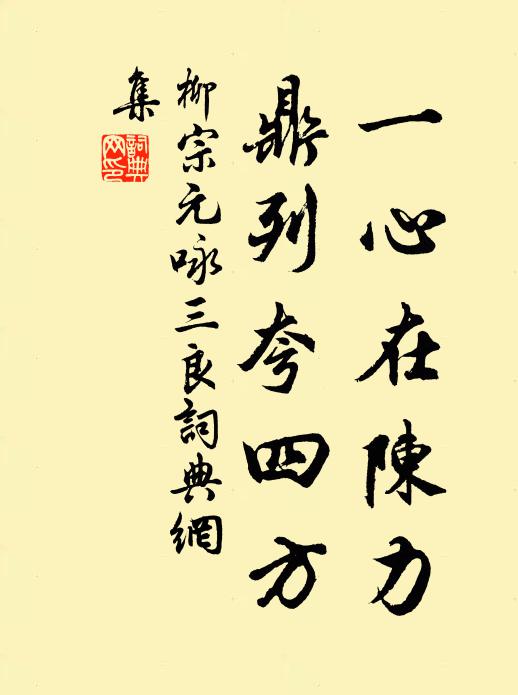 一心在陳力
鼎列夸四方
柳宗元咏三良詞典網
集
詞典
网印